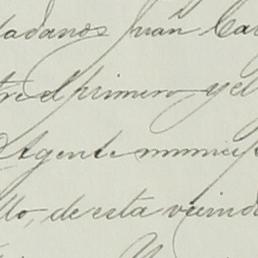 dadanos Juan Car
tre el primero y el
Agente municip
llo, de esta vecinda